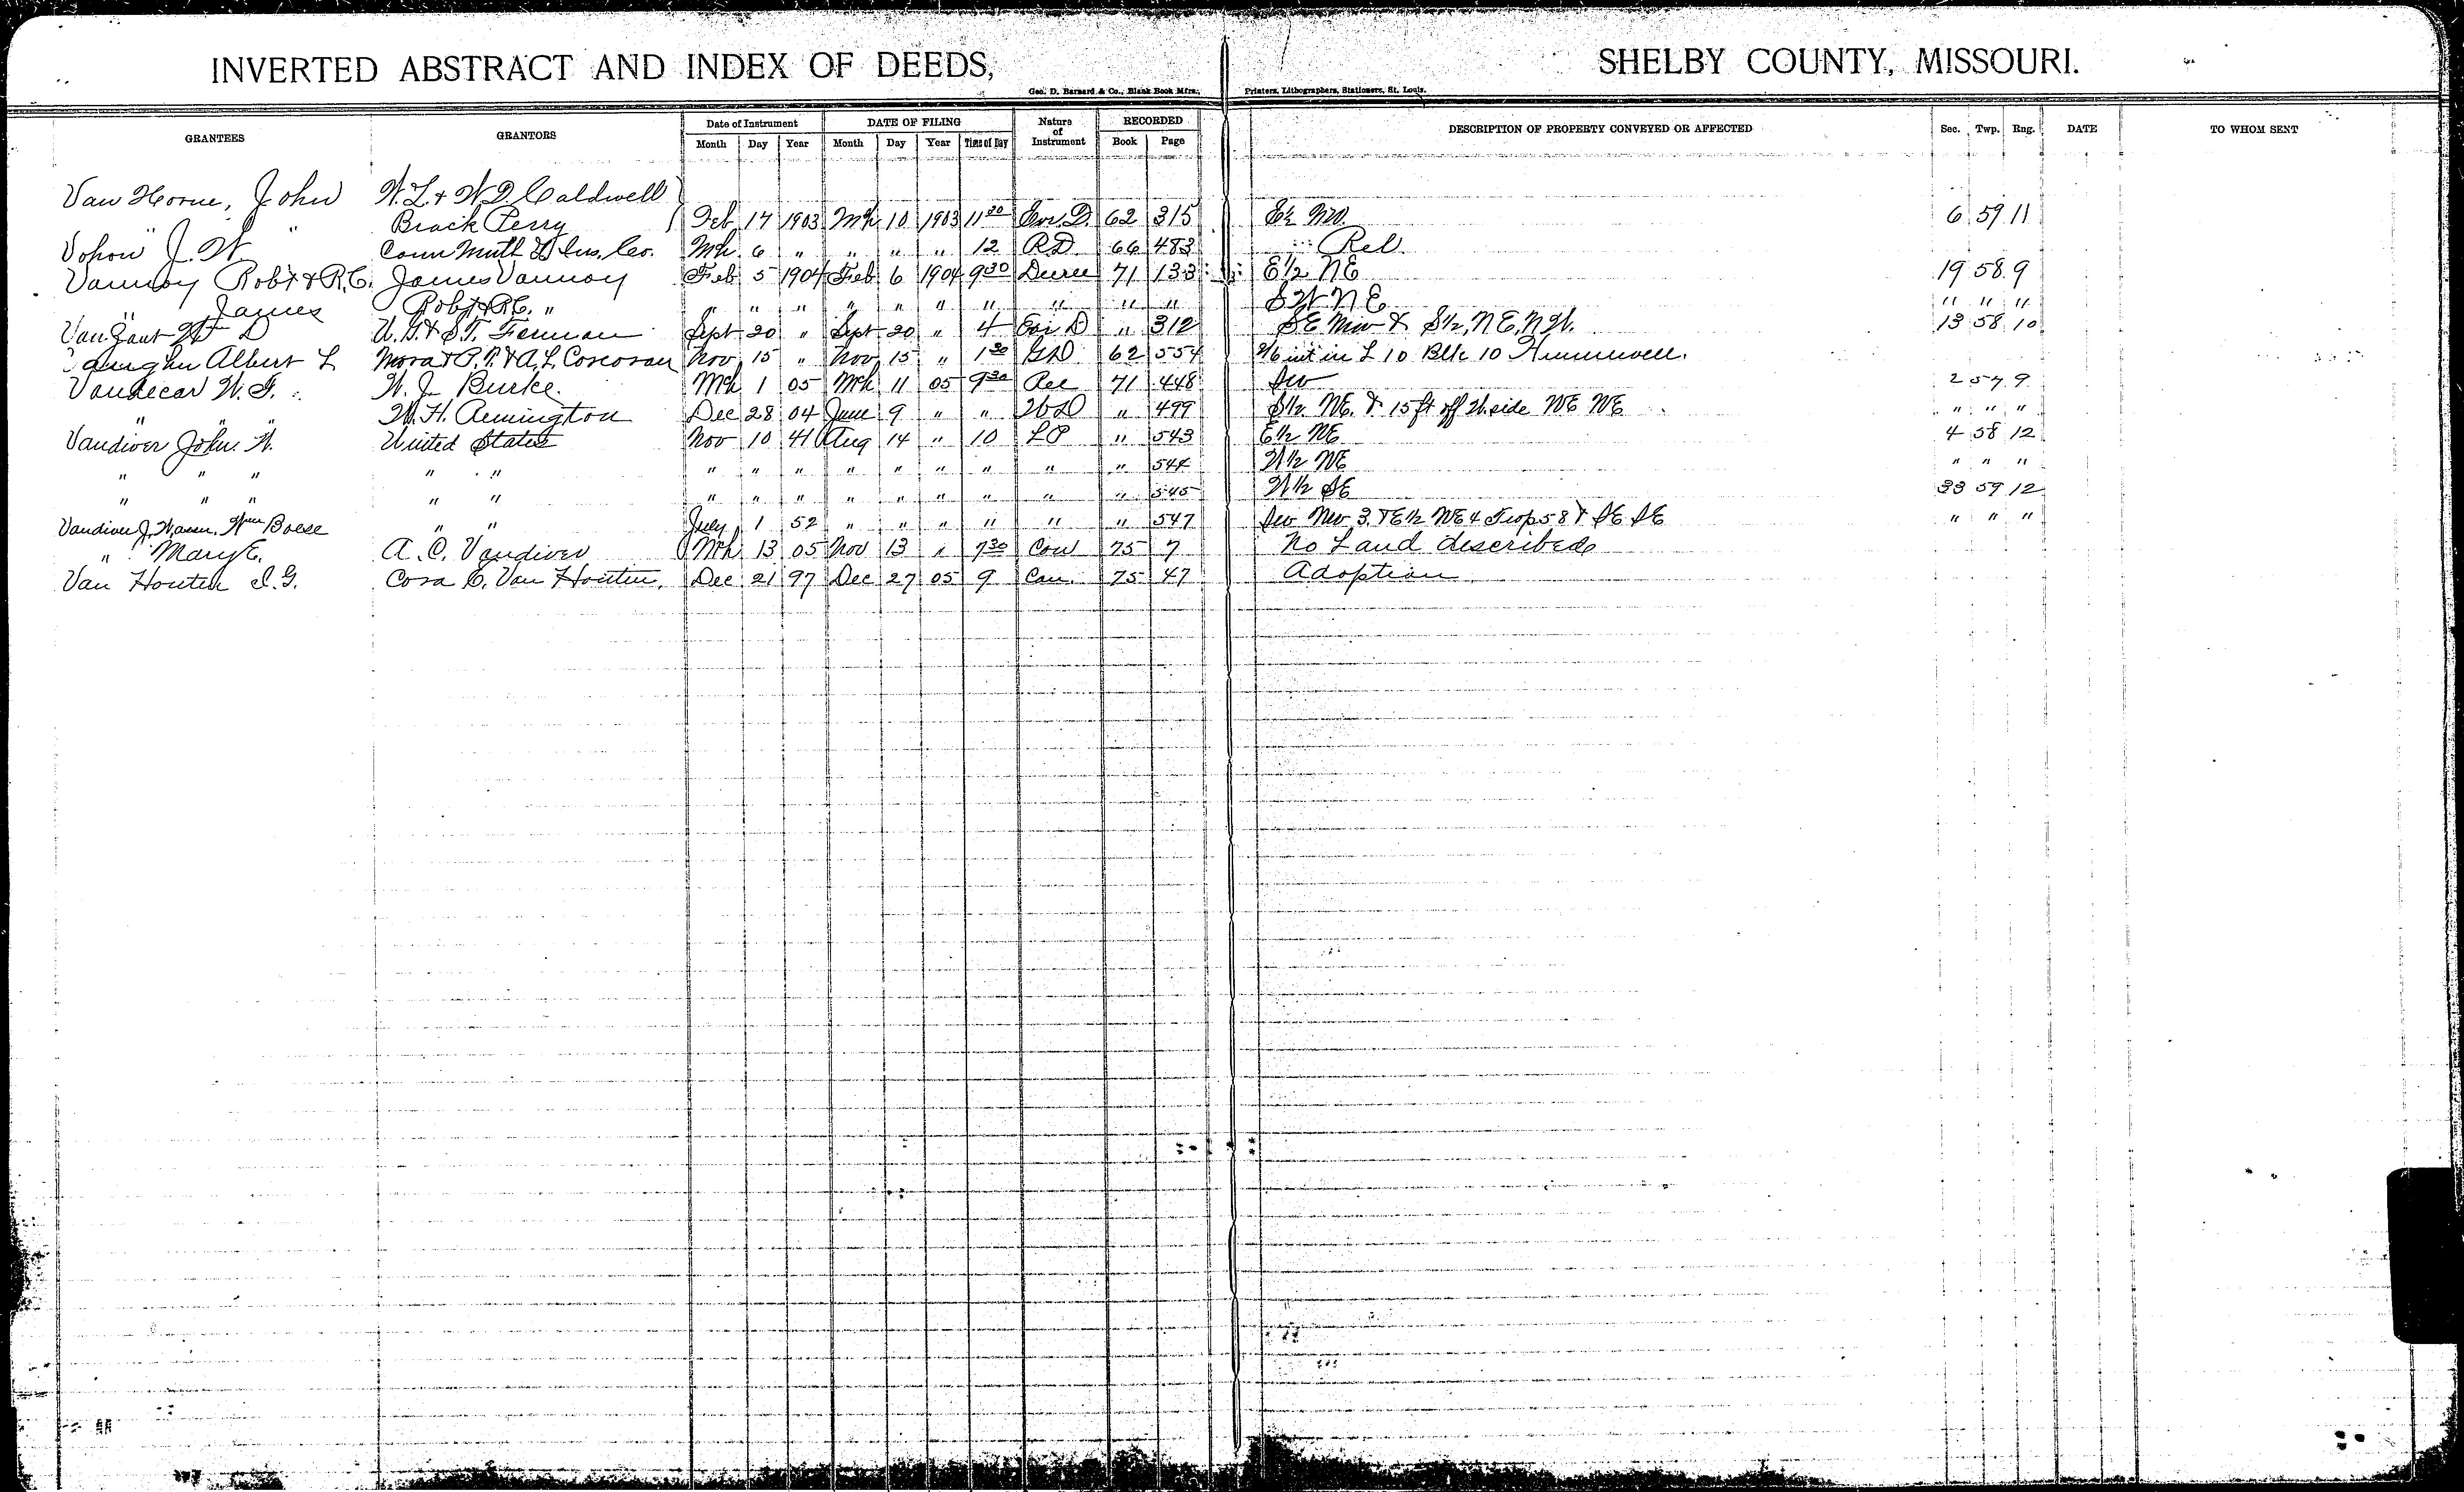 INVERTED ABSTRACT AND INDEX OF DEEDS, SHELBY COUNTY, MISSOURI.
Geo. D. Barnard & Co., Blank Book Mfrs., Printers, Lithographers, Stationers, St. Louis.
GRANTEES GRANTORS Date of Instrument DATE OF FILING Nature of Instrument RECORDED DESCRIPTION OF PROPERTY CONVEYED OR AFFECTED Sec. Twp. Rng. DATE TO WHOM SENT
Month Day Year Month Day Year Time of Day Book Page
Van Horne, John W. L. & W. D. Caldwell
" " Brack Perry Feb 17 1903 Mh 10 1903 11 30 62 315 E½ 6 59 11
Vohon J. W. Conn Mutl L Ins. Co. Mh 6 " " " " 12 RD 66 483 Rel
Vannoy Robt & R.C. James Vannoy Feb 5 1904 Feb 6 1904 9 30 Decree 71 133 E½ NE 19 58 9
James Robt & R.C. " " " " " " " " " " " SW NE " " "
Van Zant W D U. G. & S. T. Forman Sept 20 " Sept 20 " 4 " 312 SE NW & S½, NE, NW. 13 58 10
Albert L Nora & P. P. & A. L. Corcoran Nov 15 " Nov 15 " 1 30 62 554 int in L 10 Blk 10 Hunnewell.
Vandecar W. G. W. J. Burke. Mch 1 05 Mch 11 05 9 30 Rec 71 448 SW 2 57 9
" " W. H. Remington Dec 28 04 June 9 " " WD " 499 S½ NE. & 15 ft off W. side NE NE " " "
Vandiver John. W. United States Nov 10 41 Aug 14 " 10 LP " 543 E½ NE 4 58 12
" " " " " " " " " " " " " " 544 W½ NE " " "
" " " " " " " " " " " " " " 545 W½ SE 33 59 12
Vandiver J. Wm Boese " " July 1 52 " " " " " " 547 SW NW 3. & E½ NE 4 Twp 58 & SE SE " " "
" Mary E. A. C. Vandiver Mch 13 05 Nov 13 " 7 30 Con 75 7 No Land described
Van Houten I. G. Cora C. Van Houten. Dec 21 97 Dec 27 05 9 Con. 75 47 Adoption